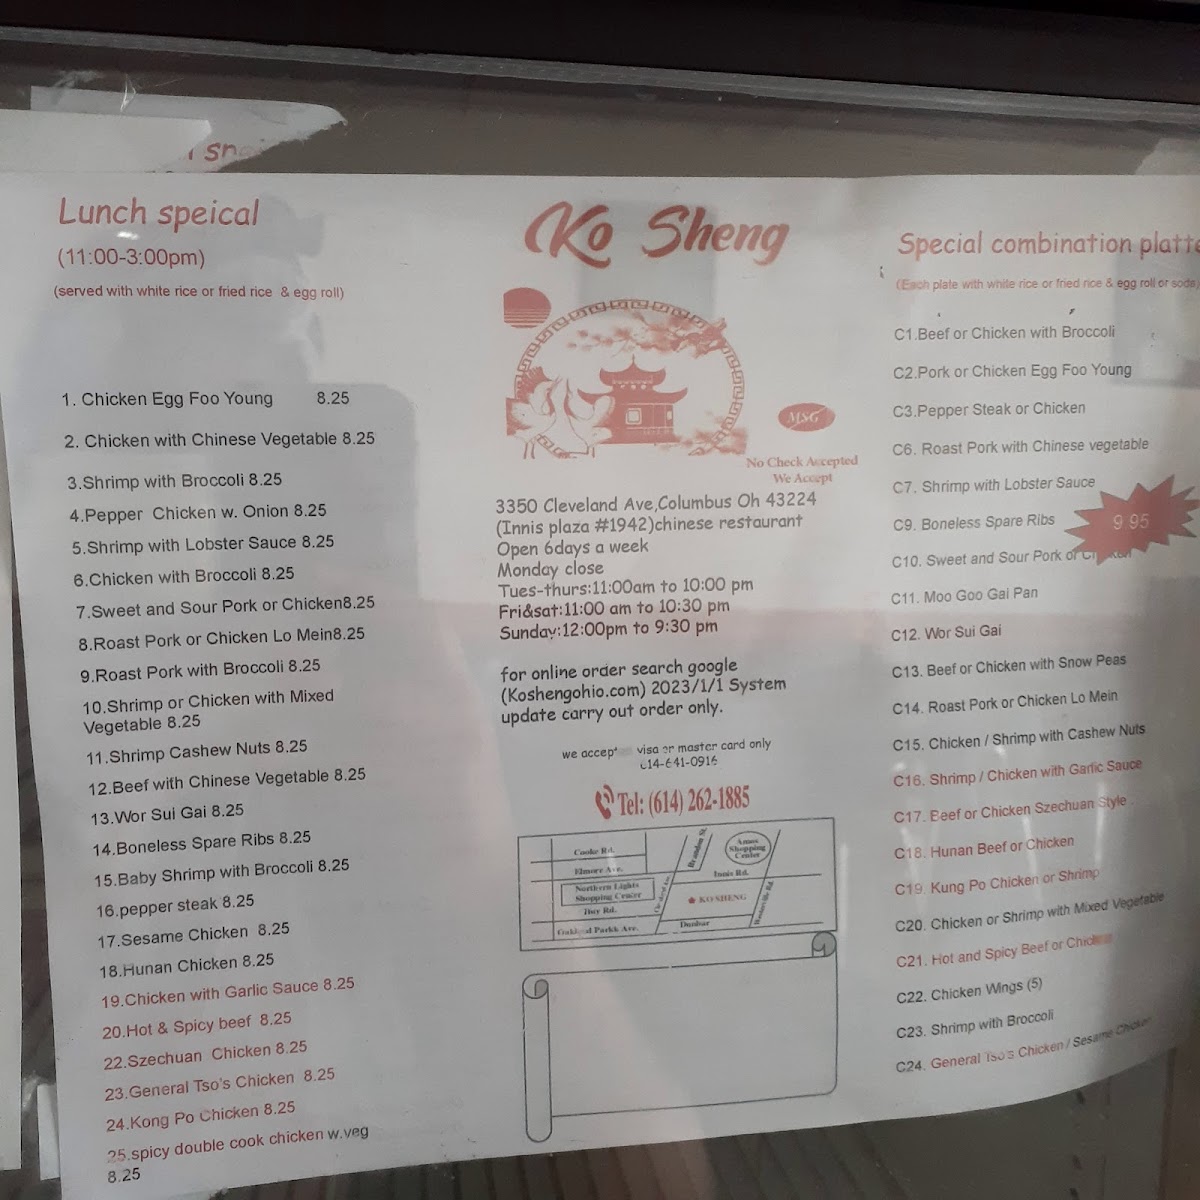 Lunch speical
(11:00-3:00pm)
(served with white rice or fried rice & egg roll)
1. Chicken Egg Foo Young 8.25
2. Chicken with Chinese Vegetable 8.25
3.Shrimp with Broccoli 8.25
4.Pepper Chicken w. Onion 8.25
5.Shrimp with Lobster Sauce 8.25
6.Chicken with Broccoli 8.25
7.Sweet and Sour Pork or Chicken8.25
8.Roast Pork or Chicken Lo Mein8.25
9.Roast Pork with Broccoli 8.25
10.Shrimp or Chicken with Mixed
Vegetable 8.25
11.Shrimp Cashew Nuts 8.25
12.Beef with Chinese Vegetable 8.25
13.Wor Sui Gai 8.25
14.Boneless Spare Ribs 8.25
15.Baby Shrimp with Broccoli 8.25
16.pepper steak 8.25
17.Sesame Chicken 8.25
18.Hunan Chicken 8.25
19.Chicken with Garlic Sauce 8.25
20.Hot & Spicy beef 8.25
22.Szechuan Chicken 8.25
23.General Tso's Chicken 8.25
24.Kong Po Chicken 8.25
25.spicy double cook chicken w.veg
8.25
Ko Sheng
MSG
No Check Accepted
We Accept
3350 Cleveland Ave,Columbus Oh 43224
(Innis plaza #1942)chinese restaurant
Open 6days a week
Monday close
Tues-thurs:11:00am to 10:00 pm
Fri&sat:11:00 am to 10:30 pm
Sunday:12:00pm to 9:30 pm
for online order search google
(Koshengohio.com) 2023/1/1 System
update carry out order only.
we accept visa or master card only
614-641-0916
Tel: (614) 262-1885
Cooke Rd.
Elmore Ave.
Northern Lights
Shopping Center
Huy Rd.
Oakland Parkk Ave.
Cleveland Ave.
Brandon St.
Amos
Shopping
Center
Innis Rd.
KO SHENG
Dunbar
Westerville Rd.
Special combination platte
(Each plate with white rice or fried rice & egg roll or soda)
C1.Beef or Chicken with Broccoli
C2.Pork or Chicken Egg Foo Young
C3.Pepper Steak or Chicken
C6. Roast Pork with Chinese vegetable
C7. Shrimp with Lobster Sauce
C9. Boneless Spare Ribs
9.95
C10. Sweet and Sour Pork or Chicken
C11. Moo Goo Gai Pan
C12. Wor Sui Gai
C13. Beef or Chicken with Snow Peas
C14. Roast Pork or Chicken Lo Mein
C15. Chicken / Shrimp with Cashew Nuts
C16. Shrimp / Chicken with Garlic Sauce
C17. Beef or Chicken Szechuan Style
C18. Hunan Beef or Chicken
C19. Kung Po Chicken or Shrimp
C20. Chicken or Shrimp with Mixed Vegetable
C21. Hot and Spicy Beef or Chicken
C22. Chicken Wings (5)
C23. Shrimp with Broccoli
C24. General Tso's Chicken / Sesame Chicken